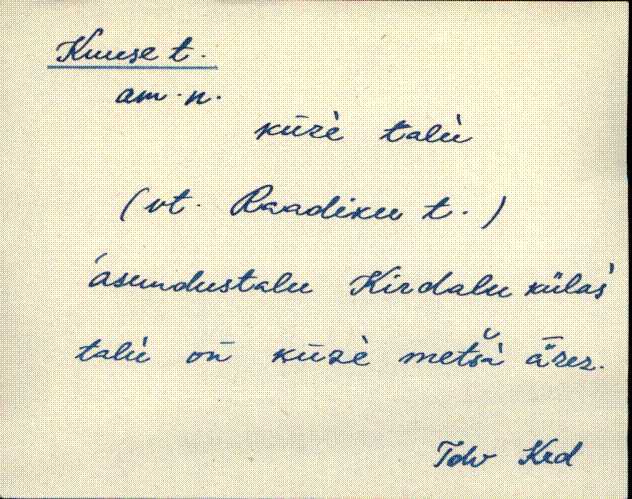 Kuuse t.
am. n.
kūzè talù
(vt. Raadiku t.)
asundustalu Kirdalu külas̀
talù oñ kūzè metsà ǟrez.
Tdv Krd